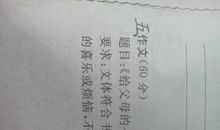 五、作文(60分)
题目:《给父母的
要求:文体符合书
的喜乐或烦恼,不